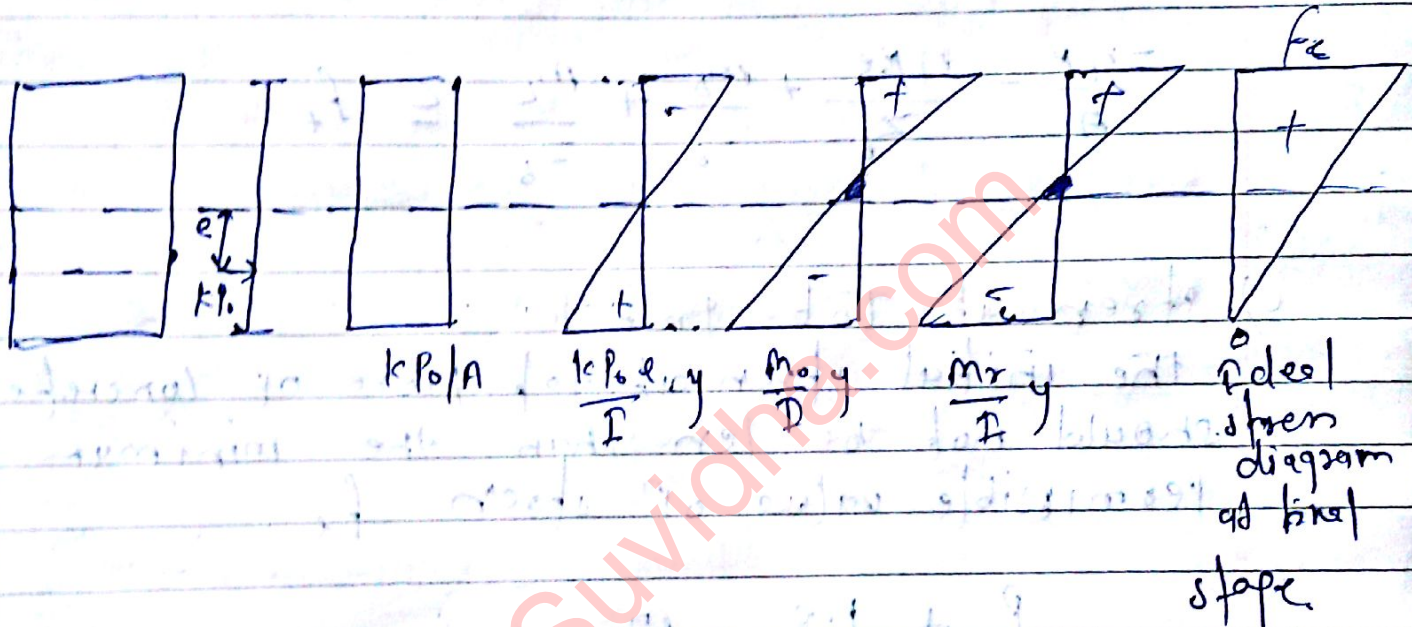 fc
- + + +
e
kP₀
+ - -
kP₀/A kP₀e/I . y M₀/I . y Mr/I y
0
Ideal
stress
diagram
at final
stage.
Suvidha.com